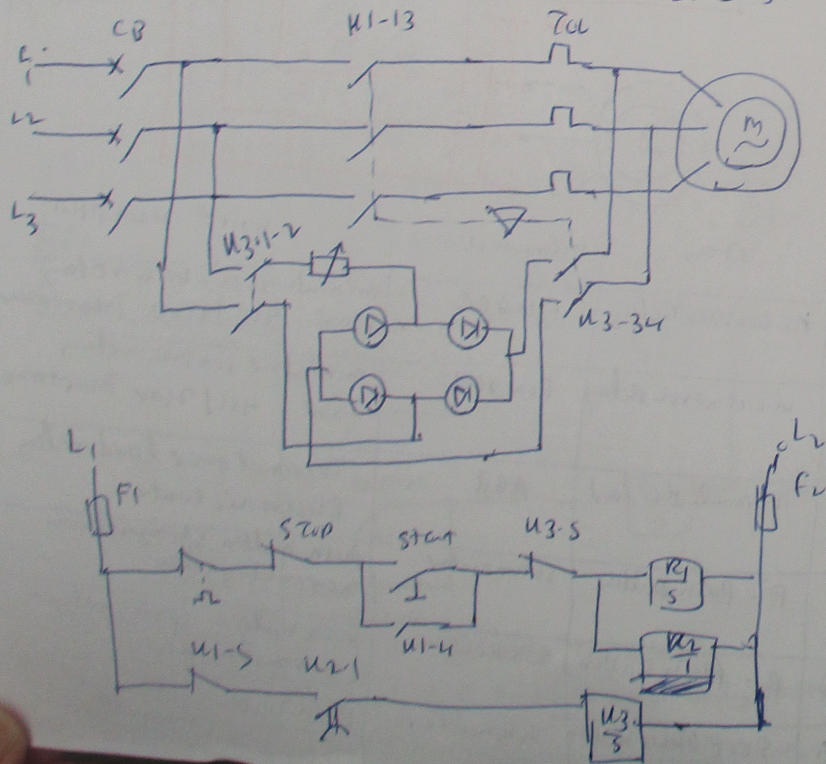 CB
K1-13
TOL
L1
L2
L3
M
K3-1-2
K3-34
L1
L2
F1
F2
STOP
Start
K3-5
K1-4
K1/5
K2/1
K1-5
K2-1
K3/5